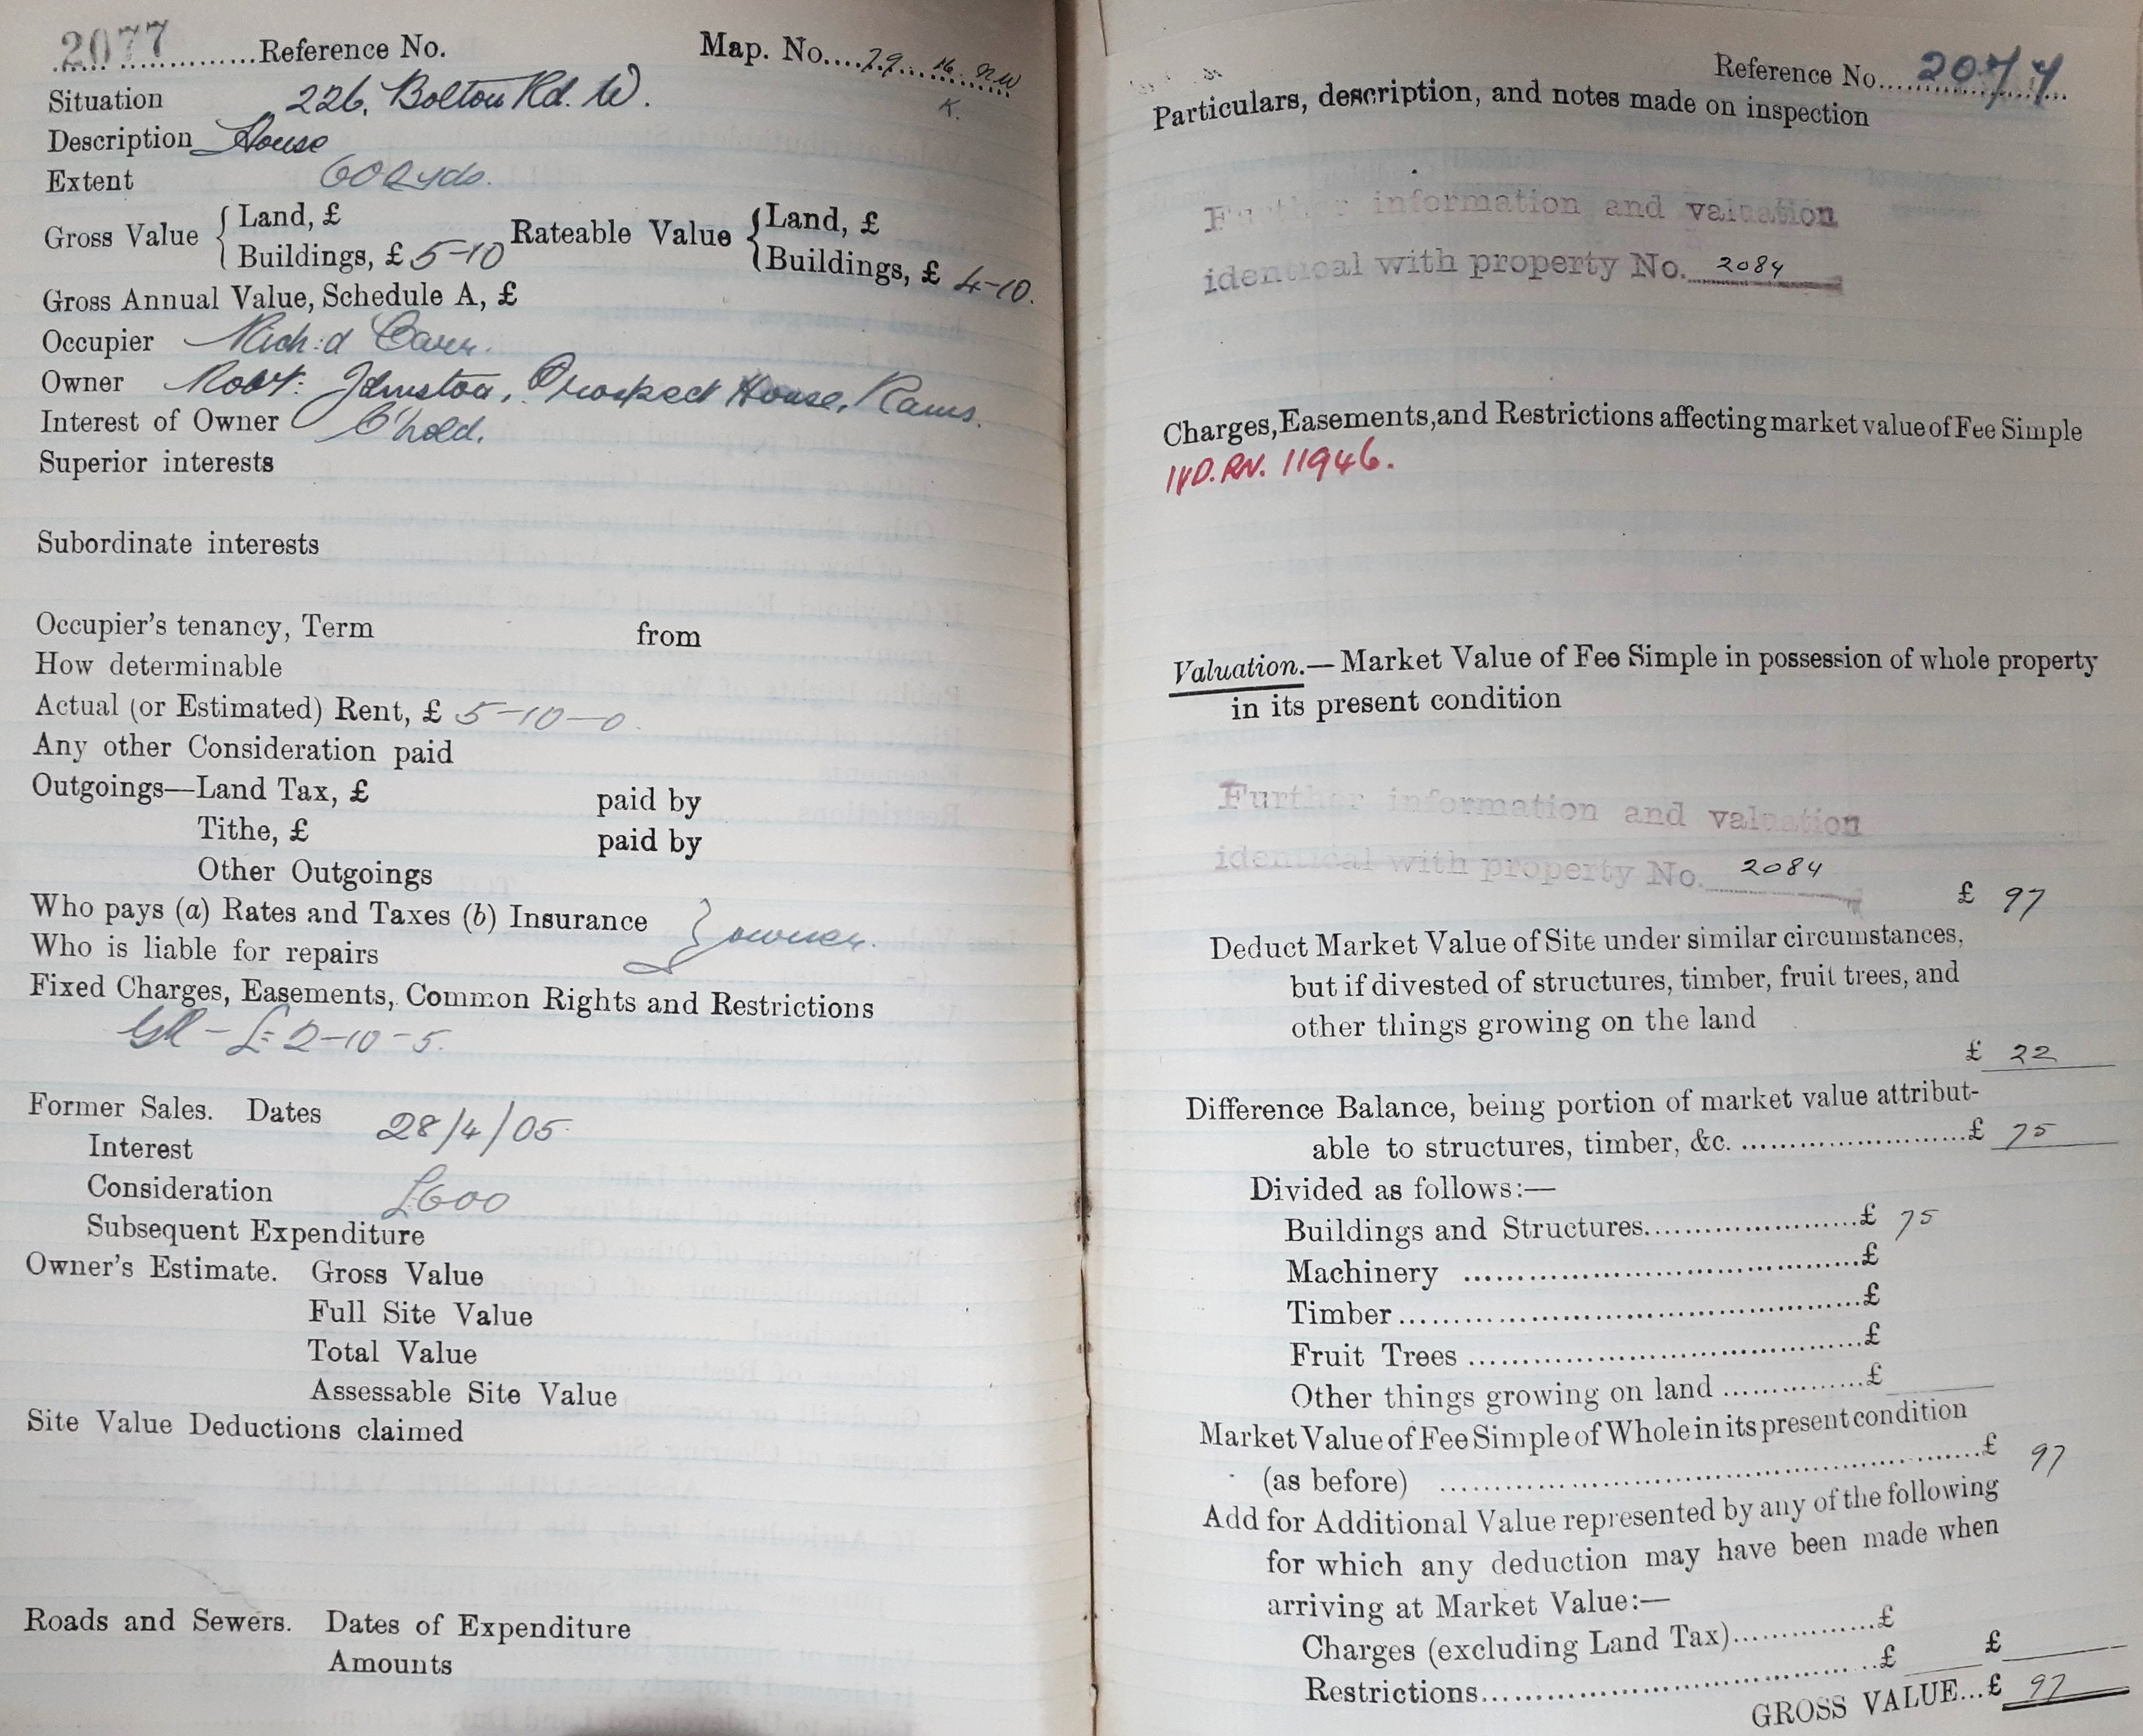 2077 Reference No. Map. No. 79. 16. NW
K.
Situation 226, Bolton Rd. W.
Description House
Extent 602yds.
Gross Value { Land, £ Rateable Value { Land, £
Buildings, £ 5-10 Buildings, £ 4-10.
Gross Annual Value, Schedule A, £
Occupier Rich:d Carr.
Owner Robt: Johnston, Prospect House, Rams.
Interest of Owner L'hold.
Superior interests
Subordinate interests
Occupier's tenancy, Term from
How determinable
Actual (or Estimated) Rent, £ 5-10-0.
Any other Consideration paid
Outgoings—Land Tax, £ paid by
Tithe, £ paid by
Other Outgoings
Who pays (a) Rates and Taxes (b) Insurance } owner.
Who is liable for repairs
Fixed Charges, Easements, Common Rights and Restrictions
GR - £2-10-5.
Former Sales. Dates 28/4/05
Interest
Consideration £600
Subsequent Expenditure
Owner's Estimate. Gross Value
Full Site Value
Total Value
Assessable Site Value
Site Value Deductions claimed
Roads and Sewers. Dates of Expenditure
Amounts
Reference No. 2077
Particulars, description, and notes made on inspection
Further information and valuation
identical with property No. 2084
Charges, Easements, and Restrictions affecting market value of Fee Simple
IVD. RN. 11946.
Valuation.—Market Value of Fee Simple in possession of whole property
in its present condition
Further information and valuation
identical with property No. 2084
£ 97
Deduct Market Value of Site under similar circumstances,
but if divested of structures, timber, fruit trees, and
other things growing on the land
£ 22
Difference Balance, being portion of market value attribut-
able to structures, timber, &c. £ 75
Divided as follows:—
Buildings and Structures £ 75
Machinery £
Timber £
Fruit Trees £
Other things growing on land £
Market Value of Fee Simple of Whole in its present condition
(as before) £ 97
Add for Additional Value represented by any of the following
for which any deduction may have been made when
arriving at Market Value:—
Charges (excluding Land Tax) £
Restrictions £ £
GROSS VALUE...£ 97